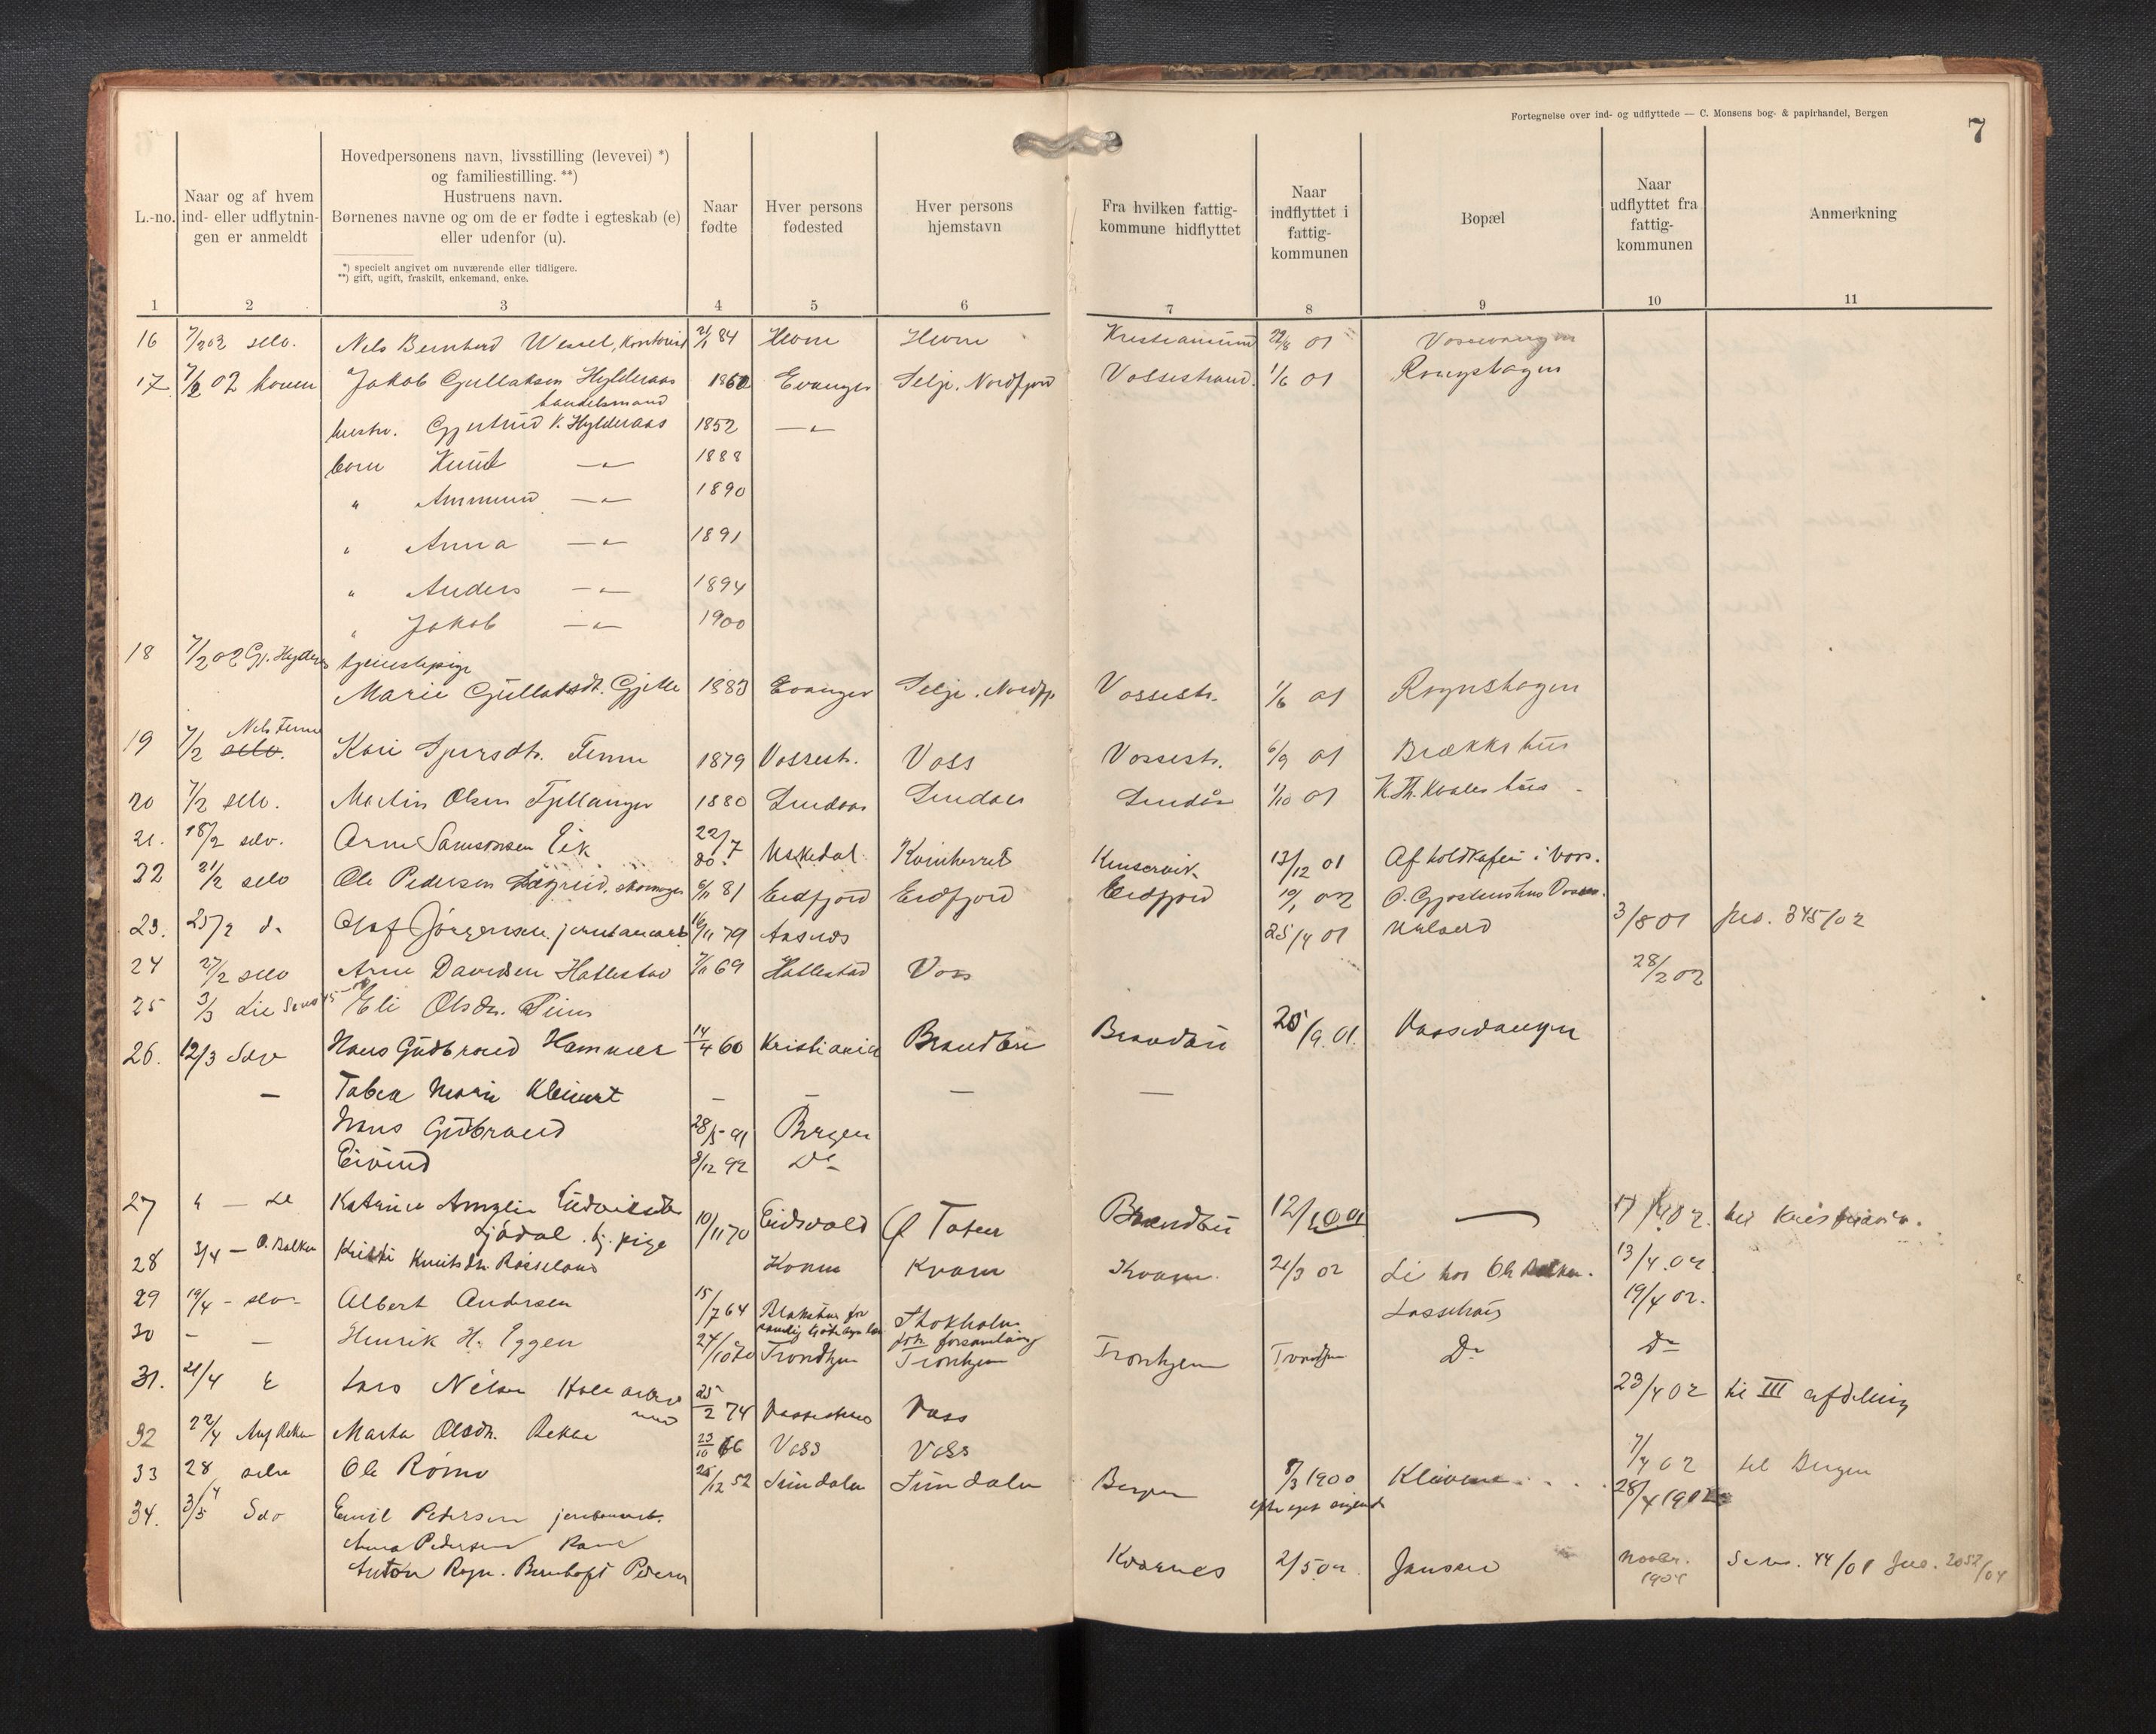 Fortegnelse over ind- og udflyttede — C. Monsens bog- & papirhandel, Bergen
7
L.-no.
Naar og af hvem
ind- eller udflytnin-
gen er anmeldt
Hovedpersonens navn, livsstilling (levevei) *)
og familiestilling. **)
Hustruens navn.
Børnenes navne og om de er fødte i egteskab (e)
eller udenfor (u).
*) specielt angivet om nuværende eller tidligere.
**) gift, ugift, fraskilt, enkemand, enke.
Naar
fødte
Hver persons
fødested
Hver persons
hjemstavn
Fra hvilken fattig-
kommune hidflyttet
Naar
indflyttet i
fattig-
kommunen
Bopæl
Naar
udflyttet fra
fattig-
kommunen
Anmerkning
1 2 3 4 5 6 7 8 9 10 11
16 7/2 02 selv. Nels Bernhard Wessel, Kontorist 21/1 84 22/8 01 Vossevangen
17 7/2 02 konen Jakob Gullaksen Hylderaas 1862 Evanger Selje. Nordfjord Vossestrand. 1/6 01 Rongshagen
handelsmand
hustr. Gjertrud K. Hylderaas 1852 — " —
born Knut — " — 1888
" Ammund — " — 1890
" Anna — " — 1891
" Anders — " — 1894
" Jakob — " — 1900
18 7/2 02 Gj. Hylderaas tjenestepige
Marie Gullaksdt. Gjelle 1883 Evanger Selje. Nordfj. Vossestr. 1/6 01 Rognshagen
Nels Tenne
19 7/2 selv. Kari Sjursdtr. Tenne 1879 Vossestr. Voss Vossestr. 6/9 01 Brækkehus
20 7/2 selv. Martin Olsen Fjellanger 1880 Lindaas Lindaas Lindås 1/10 01 K. Th. Kvales hus
21. 18/2 selv. Arne Samsonsen Eik 22/7 80. Uskedal Kvinherred Kinservik 13/12 01 Afholdkafeen i Voss.
22 21/2 selv Ole Pedersen skomager 6/11 81 Eidfjord Eidfjord Eidfjord 10/1 02
23. 25/2 d. Olaf Jörgensen. jernbanearb 16/11 79 Aasnes 25/4 01 Urland 3/8 01 Jno. 345/02
24 27/2 selv Arne Davidsen Hallestad 7/11 69 Hallestad Voss 28/2 02
25 3/3 Eli Olsdtr.
26. 12/3 Selv Hans Gudbrand Hammer 14/4 60 Kristiania Brandbu Brandbu 25/9. 01. Vossevangen
— Tabea Marie Kleivert — — — —
Hans Gudbrand 28/5 91 Bergen
Eivind 8/12 92 Do
27 " — Do Katrine Amalie
tj. pige 10/11 70 Eidsvold Ø Toten Brandbu 12/ — 17/ 02. til Kristiania.
28 3/4 — O. Bakken Kristi Knutsdtr. Rosseland Kvam Kvam Kvam 21/3 02 Li hos Ole Bakken. 13/4 02.
29 19/4 - selv - Albert Andersen 15/7 64 Stokholm 19/4 02.
joh. forsamling
30 - — Henrik H. Eggen 24/10 Trondhjem Tronhjem Tronhjem Trondhjem Do Do
31. 21/4 Lars Nelsen 25/2 74 Vossestrand Voss 23/4 02 til III afdeling
32 22/4 Marta Olsdtr. Rekve 23/10 66 Voss Voss 7/4 02 til Bergen
33 28/4 selv Ole Romo 25/12 52 Sundalen Sundalen Bergen 8/3 1900 Klivene 28/4 1902
34. 3/5 Selv Emil Pedersen jernbanearb.
Anna Pedersen
Anton Ragn. Bernhoft Pedersen Kvarnes 2/5 02. Jansen Novbr. 1904 44/01 Jno. 2052/04